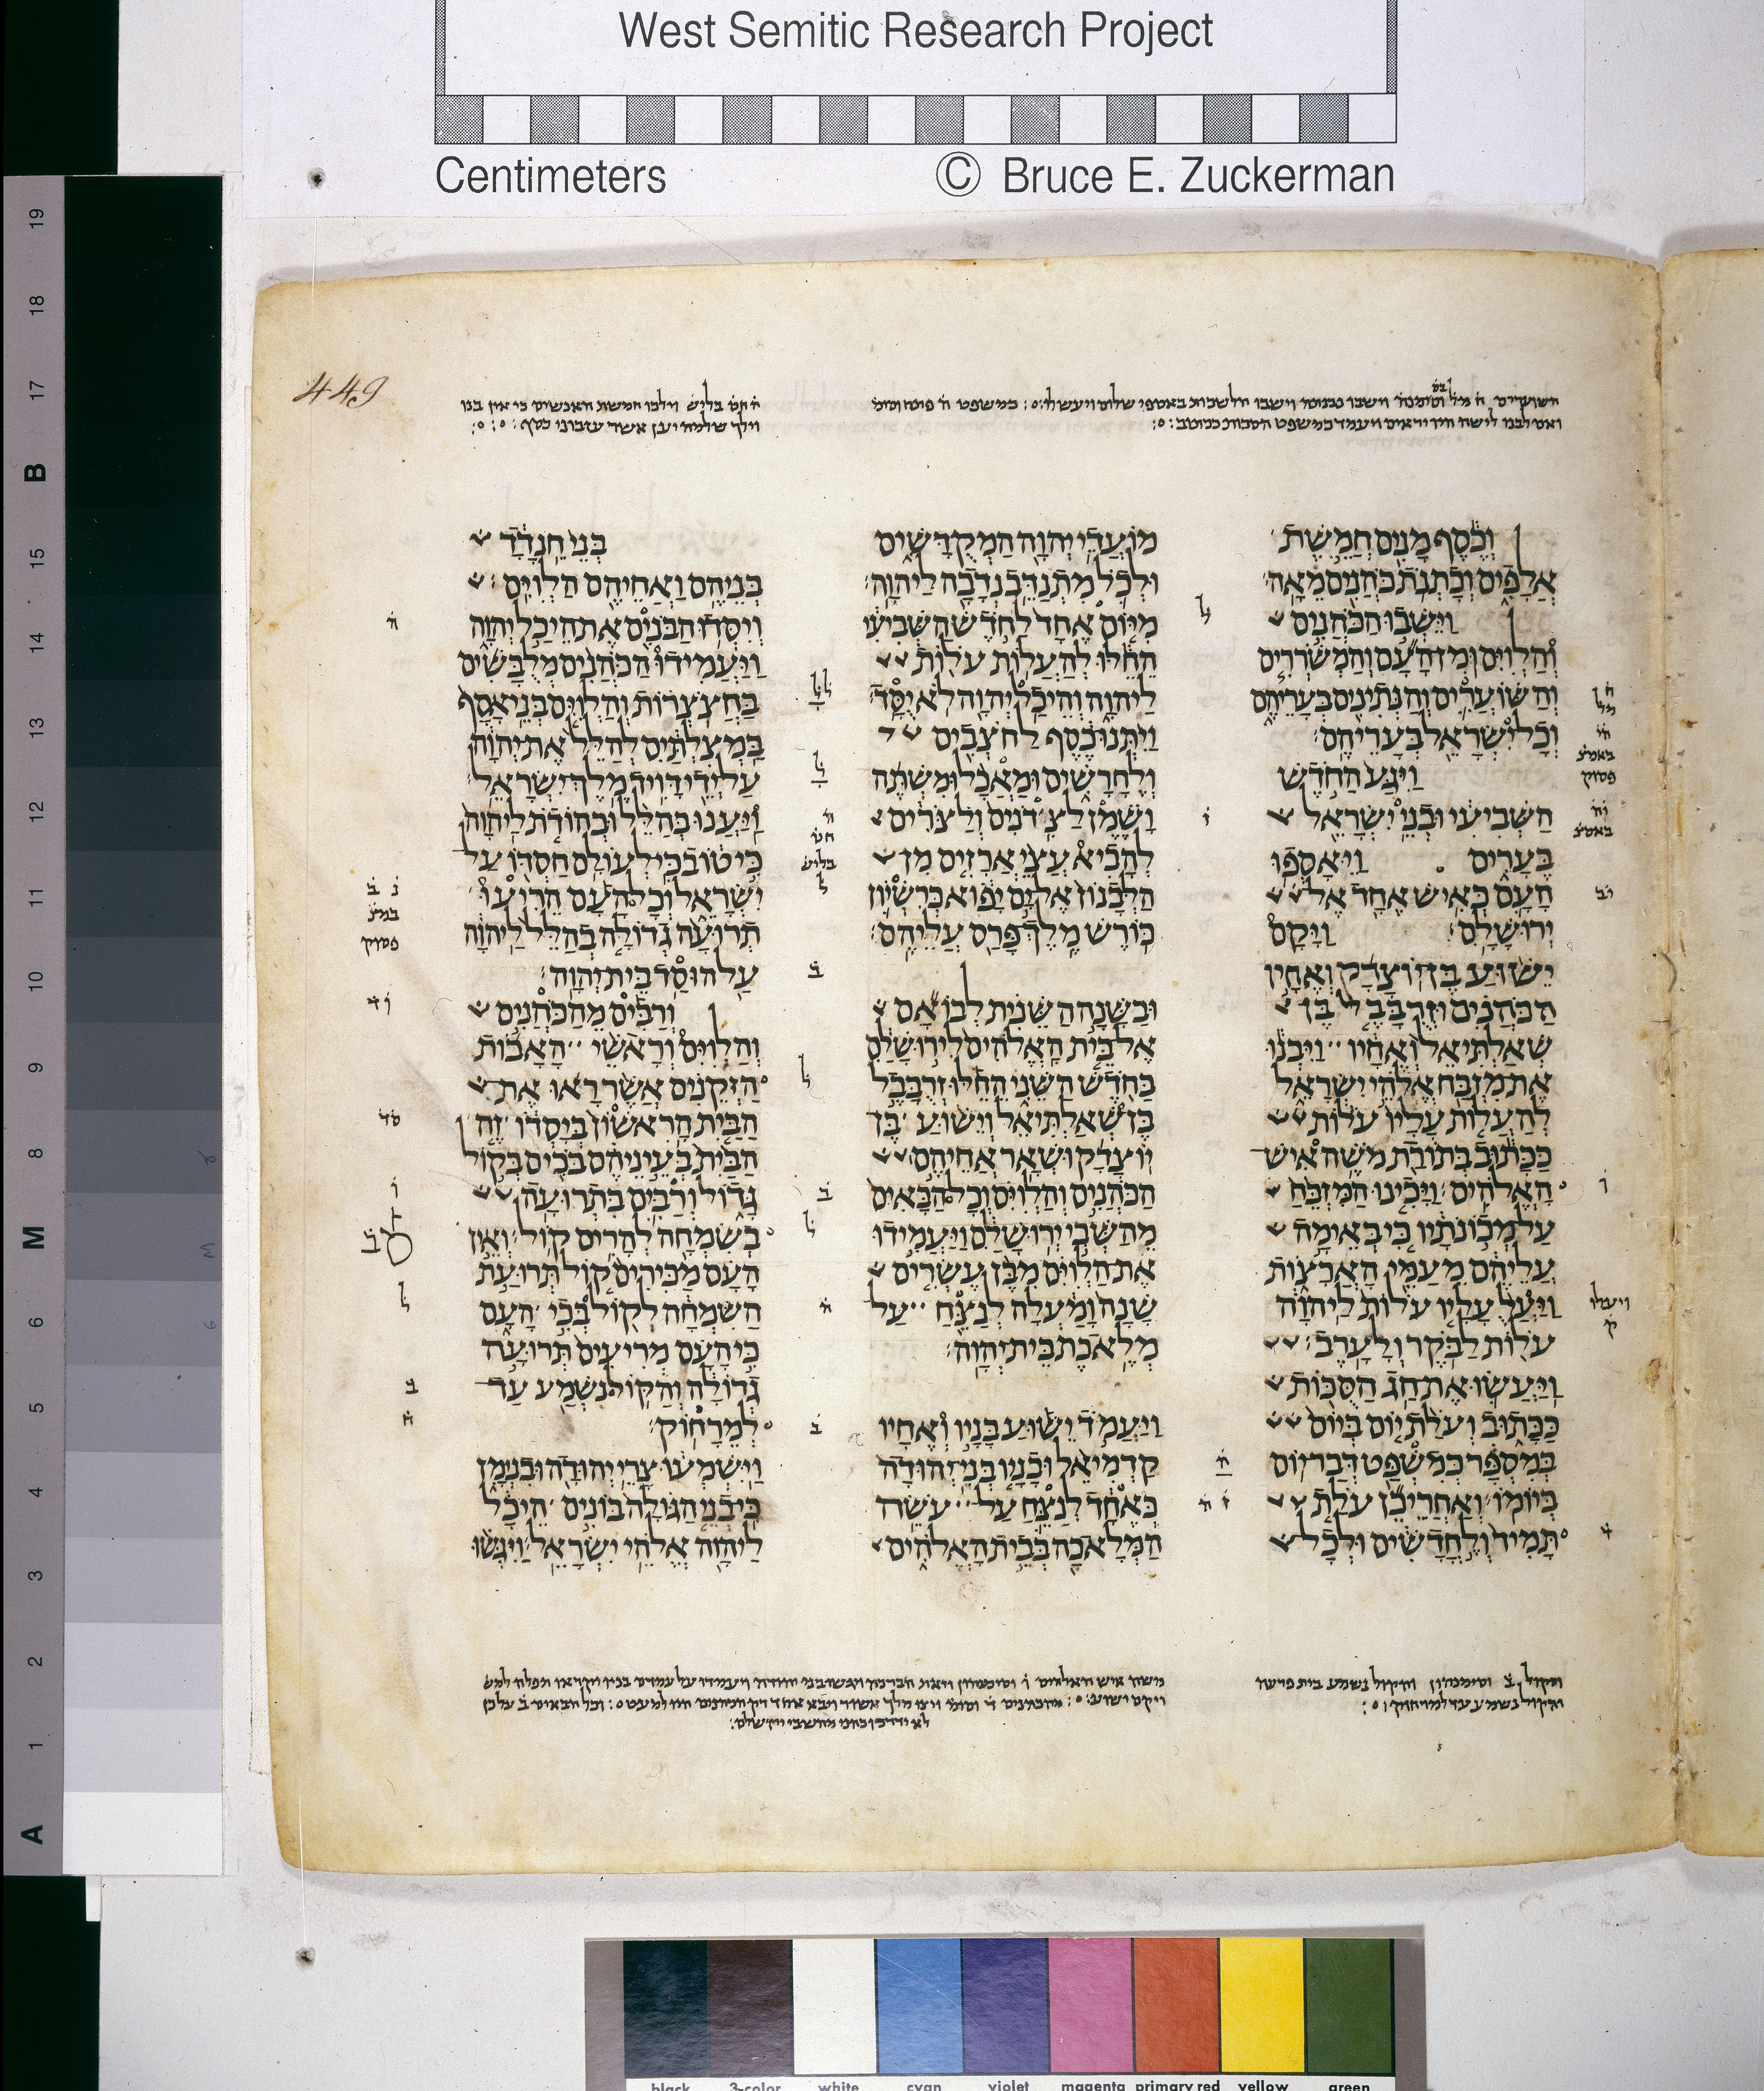 West Semitic Research Project
Centimeters © Bruce E. Zuckerman
449
וְכֶסֶף מָנִים חֲמֵשֶׁת
אֲלָפִים וְכָתְנֹת כֹּהֲנִים מֵאָה׃
וַיֵּשְׁבוּ הַכֹּהֲנִים
וְהַלְוִיִּם וּמִן הָעָם וְהַמְשֹׁרְרִים
וְהַשּׁוֹעֲרִים וְהַנְּתִינִים בְּעָרֵיהֶם
וְכָל יִשְׂרָאֵל בְּעָרֵיהֶם׃
וַיִּגַּע הַחֹדֶשׁ
הַשְּׁבִיעִי וּבְנֵי יִשְׂרָאֵל
בֶּעָרִים וַיֵּאָסְפוּ
הָעָם כְּאִישׁ אֶחָד אֶל
יְרוּשָׁלִָם׃ וַיָּקָם
יֵשׁוּעַ בֶּן יוֹצָדָק וְאֶחָיו
הַכֹּהֲנִים וּזְרֻבָּבֶל בֶּן
שְׁאַלְתִּיאֵל וְאֶחָיו וַיִּבְנוּ
אֶת מִזְבַּח אֱלֹהֵי יִשְׂרָאֵל
לְהַעֲלוֹת עָלָיו עֹלוֹת
כַּכָּתוּב בְּתוֹרַת מֹשֶׁה אִישׁ
הָאֱלֹהִים׃ וַיָּכִינוּ הַמִּזְבֵּחַ
עַל מְכוֹנֹתָיו כִּי בְּאֵימָה
עֲלֵיהֶם מֵעַמֵּי הָאֲרָצוֹת
וַיַּעַל עָלָיו עֹלוֹת לַיהוָה
עֹלוֹת לַבֹּקֶר וְלָעָרֶב׃
וַיַּעֲשׂוּ אֶת חַג הַסֻּכּוֹת
כַּכָּתוּב וְעֹלַת יוֹם בְּיוֹם
בְּמִסְפָּר כְּמִשְׁפַּט דְּבַר יוֹם
בְּיוֹמוֹ׃ וְאַחֲרֵי כֵן עֹלַת
תָּמִיד וְלֶחֳדָשִׁים וּלְכָל
מוֹעֲדֵי יְהוָה הַמְקֻדָּשִׁים
וּלְכֹל מִתְנַדֵּב נְדָבָה לַיהוָה׃
מִיּוֹם אֶחָד לַחֹדֶשׁ הַשְּׁבִיעִי
הֵחֵלּוּ לְהַעֲלוֹת עֹלוֹת
לַיהוָה וְהֵיכַל יְהוָה לֹא יֻסָּד׃
וַיִּתְּנוּ כֶסֶף לַחֹצְבִים
וְלֶחָרָשִׁים וּמַאֲכָל וּמִשְׁתֶּה
וָשֶׁמֶן לַצִּדֹנִים וְלַצֹּרִים
לְהָבִיא עֲצֵי אֲרָזִים מִן
הַלְּבָנוֹן אֶל יָם יָפוֹא כְּרִשְׁיוֹן
כּוֹרֶשׁ מֶלֶךְ פָּרַס עֲלֵיהֶם׃
וּבַשָּׁנָה הַשֵּׁנִית לְבוֹאָם
אֶל בֵּית הָאֱלֹהִים לִירוּשָׁלִַם
בַּחֹדֶשׁ הַשֵּׁנִי הֵחֵלּוּ זְרֻבָּבֶל
בֶּן שְׁאַלְתִּיאֵל וְיֵשׁוּעַ בֶּן
יוֹצָדָק וּשְׁאָר אֲחֵיהֶם
הַכֹּהֲנִים וְהַלְוִיִּם וְכָל הַבָּאִים
מֵהַשְּׁבִי יְרוּשָׁלִַם וַיַּעֲמִידוּ
אֶת הַלְוִיִּם מִבֶּן עֶשְׂרִים
שָׁנָה וָמַעְלָה לְנַצֵּחַ עַל
מְלֶאכֶת בֵּית יְהוָה׃
וַיַּעֲמֹד יֵשׁוּעַ בָּנָיו וְאֶחָיו
קַדְמִיאֵל וּבָנָיו בְּנֵי יְהוּדָה
כְּאֶחָד לְנַצֵּחַ עַל עֹשֵׂה
הַמְּלָאכָה בְּבֵית הָאֱלֹהִים
בְּנֵי חֵנָדָד
בְּנֵיהֶם וַאֲחֵיהֶם הַלְוִיִּם׃
וְיִסְּדוּ הַבֹּנִים אֶת הֵיכַל יְהוָה
וַיַּעֲמִידוּ הַכֹּהֲנִים מְלֻבָּשִׁים
בַּחֲצֹצְרוֹת וְהַלְוִיִּם בְּנֵי אָסָף
בַּמְצִלְתַּיִם לְהַלֵּל אֶת יְהוָה
עַל יְדֵי דָּוִיד מֶלֶךְ יִשְׂרָאֵל׃
וַיַּעֲנוּ בְּהַלֵּל וּבְהוֹדֹת לַיהוָה
כִּי טוֹב כִּי לְעוֹלָם חַסְדּוֹ עַל
יִשְׂרָאֵל וְכָל הָעָם הֵרִיעוּ
תְרוּעָה גְדוֹלָה בְהַלֵּל לַיהוָה
עַל הוּסַד בֵּית יְהוָה׃
וְרַבִּים מֵהַכֹּהֲנִים
וְהַלְוִיִּם וְרָאשֵׁי הָאָבוֹת
הַזְּקֵנִים אֲשֶׁר רָאוּ אֶת
הַבַּיִת הָרִאשׁוֹן בְּיָסְדוֹ זֶה
הַבַּיִת בְּעֵינֵיהֶם בֹּכִים בְּקוֹל
גָּדוֹל וְרַבִּים בִּתְרוּעָה
בְשִׂמְחָה לְהָרִים קוֹל׃ וְאֵין
הָעָם מַכִּירִים קוֹל תְּרוּעַת
הַשִּׂמְחָה לְקוֹל בְּכִי הָעָם
כִּי הָעָם מְרִיעִים תְּרוּעָה
גְדוֹלָה וְהַקּוֹל נִשְׁמַע עַד
לְמֵרָחוֹק׃
וַיִּשְׁמְעוּ צָרֵי יְהוּדָה וּבִנְיָמִן
כִּי בְנֵי הַגּוֹלָה בּוֹנִים הֵיכָל
לַיהוָה אֱלֹהֵי יִשְׂרָאֵל׃ וַיִּגְּשׁוּ
19
18
17
B
15
14
13
12
11
10
9
8
M
6
5
4
3
2
1
A
black 3-color white cyan violet magenta primary red yellow green